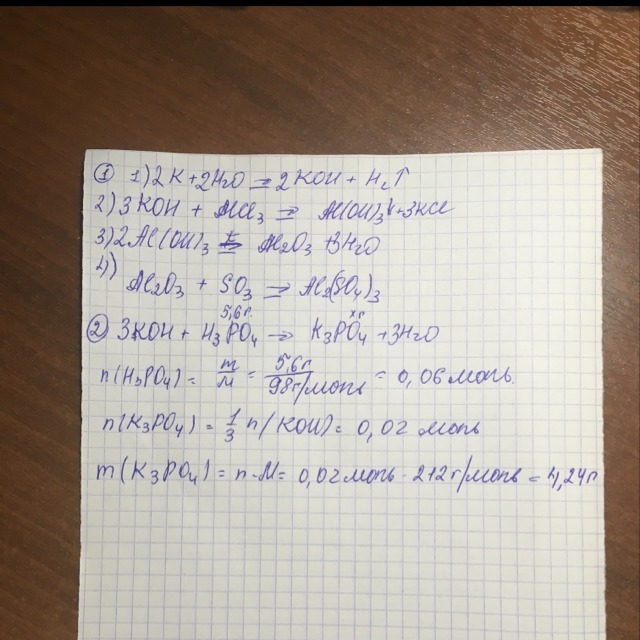 ① 1) 2K + 2H₂O = 2KOH + H₂↑
2) 3KOH + AlCl₃ = Al(OH)₃↓ + 3KCl
3) 2Al(OH)₃ = Al₂O₃ + 3H₂O
4)
Al₂O₃ + SO₃ = Al₂(SO₄)₃
5,6г xг
② 3KOH + H₃PO₄ → K₃PO₄ + 3H₂O
n(H₃PO₄) = m/M = 5,6г/98г/моль = 0,06 моль.
n(K₃PO₄) = 1/3 n(KOH) = 0,02 моль
m(K₃PO₄) = n·M = 0,02 моль · 212 г/моль = 4,24г